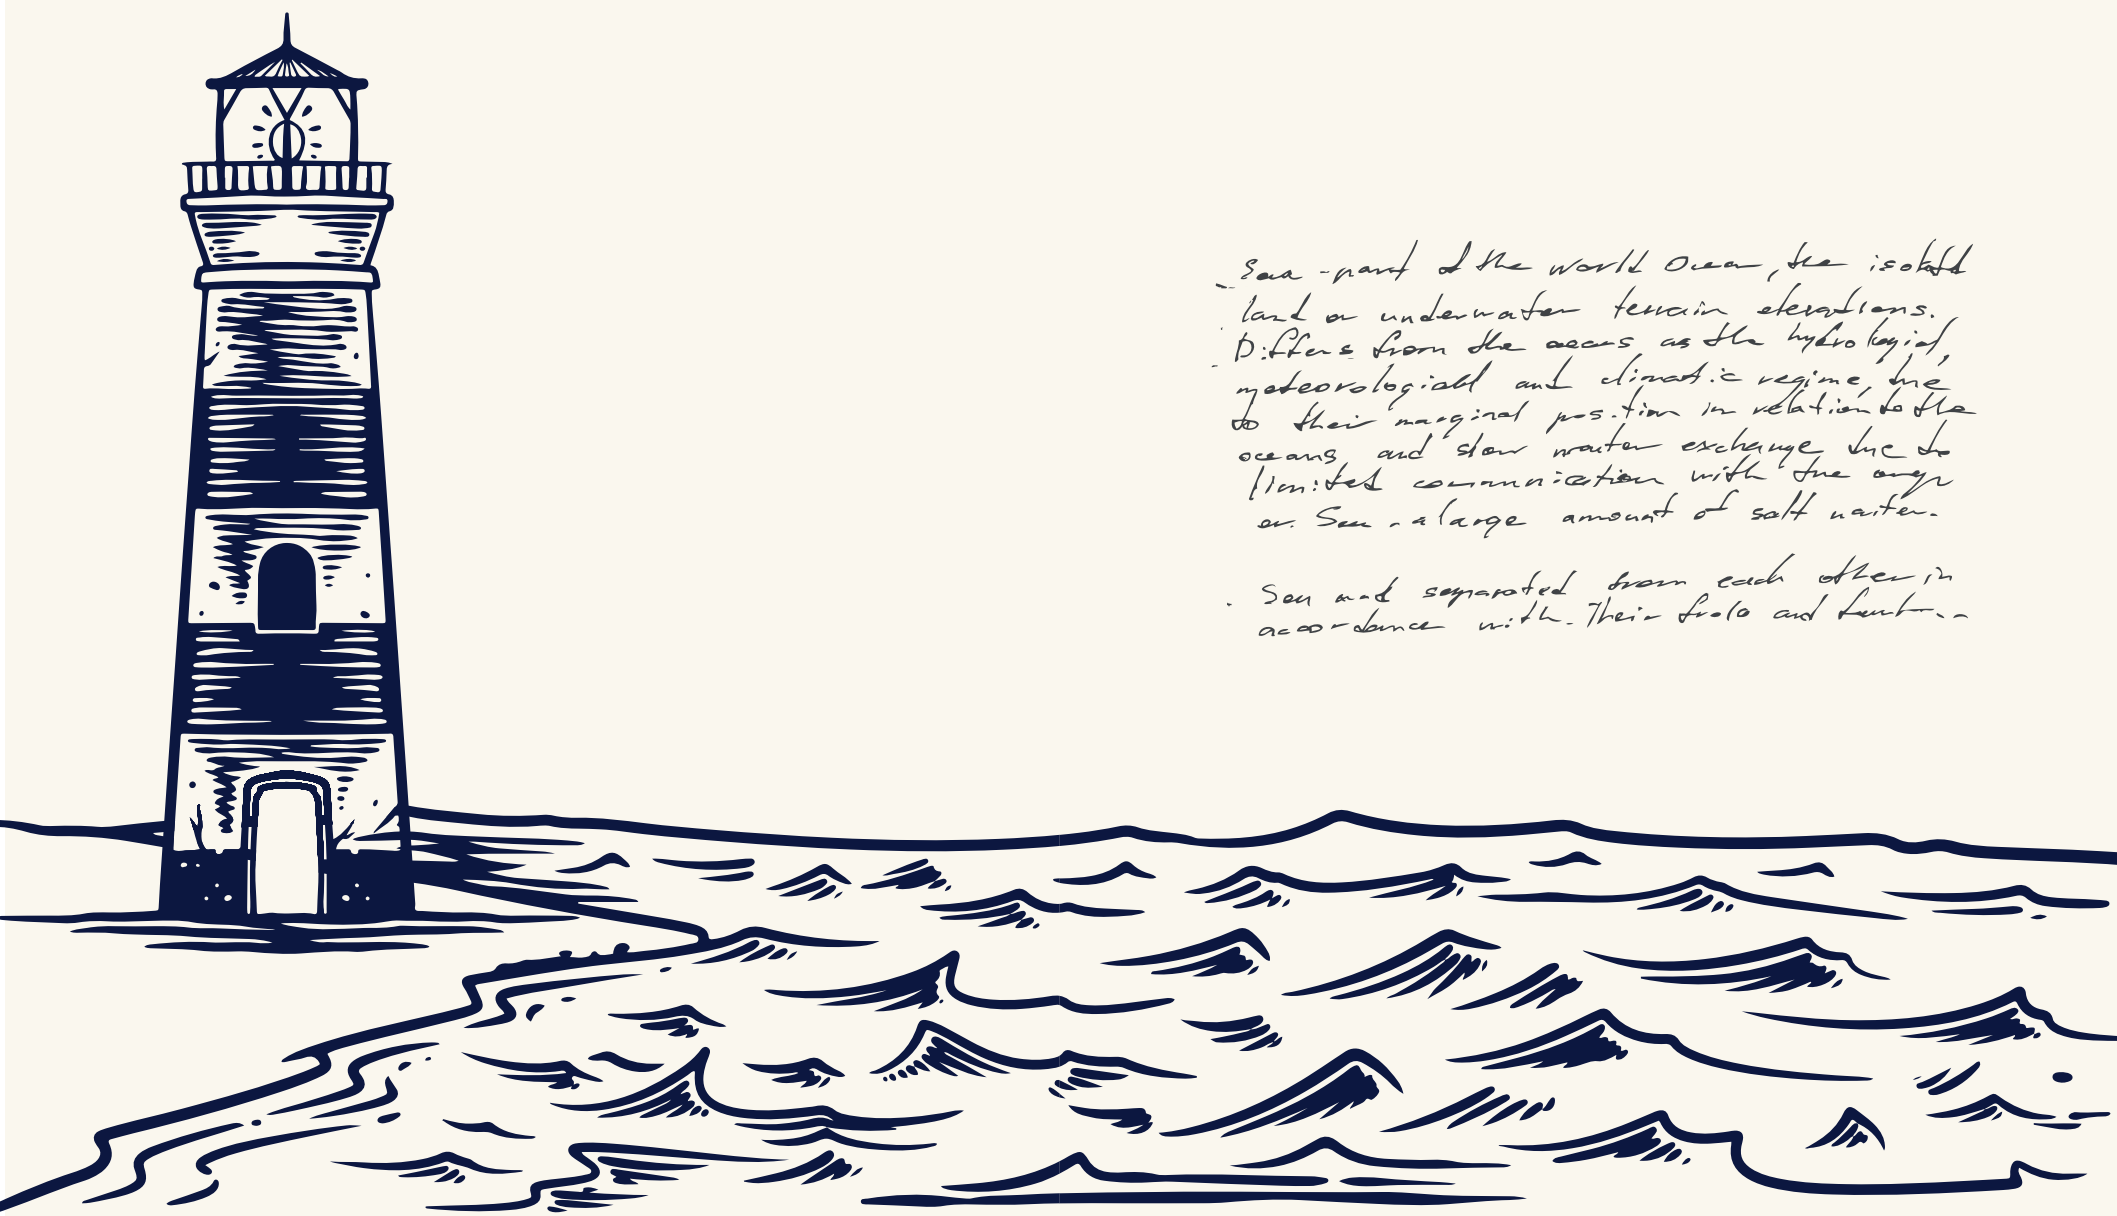 Sea - part of the world Ocean, the isolated
land or underwater terrain elevations.
Differs from the oceans as the hydrological,
meteorological and climatic regime, due
to their marginal position in relation to the
oceans and slow water exchange due to
limited communication with the
Sea - a large amount of salt water.
Sea and separated from each other in
accordance with. Their and